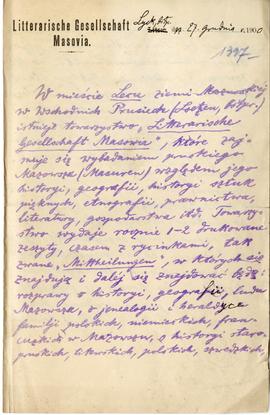 Litterarische Gesellschaft
Masovia.
Lyck, den 27. Grudnia 1900
1397
W mieście Lecu ziemi Mazowieckiej
w Wschodnich Prusiech (Loetzen, Ostpr.)
istnieje towarzystwo, "Litterarische
Gesellschaft Masovia", które zaj-
muje się wybadaniem pruskiego
Mazowsza (Masuren) względem jego
historyi, geografii, historyi sztuk
pięknych, etnografii, prawnictwa,
literatury, gospodarstwa itd. Towarzy-
stwo wydaje rocznie 1-2 drukowane
zeszyty, czasem z rycinkami, tak
zwane "Mittheilungen", w których się
znajdują i dalej się znajdować będą
rozprawy o historyi, geografii, ludu
Mazowsza, o jenealogii i heraldyce
familij polskich, niemieckich, fran-
cuzkich w Mazowszu, o historyi staro-
pruskich, litewskich, polskich, szwedzkich,